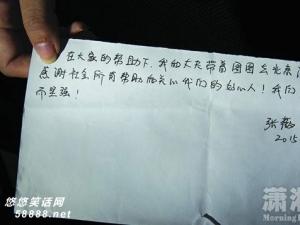 在大家的帮助下,我的丈夫带着团团去北京
感谢社会所有帮助和关心我们的好心人!我们
而坚强!
张
2015
悠悠笑话网
58888.net
潇湘
Morning